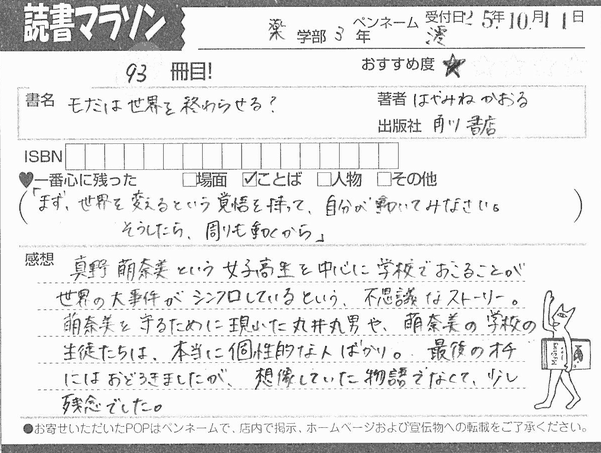 読書マラソン
薬 学部 3 年 ペンネーム 澪 受付日25年10月11日
93 冊目! おすすめ度 ★
書名 モナミは世界を終わらせる? 著者 はやみねかおる
出版社 角川書店
ISBN
♥一番心に残った □場面 ☑ことば □人物 □その他
(「まず、世界を変えるという覚悟を持って、自分が動いてみなさい。
そうしたら、周りも動くから」)
感想 真野萌奈美という女子高生を中心に学校でおこることが
世界の大事件がシンクロしているという、不思議なストーリー。
萌奈美を守るために現れた丸井丸男や、萌奈美の学校の
生徒たちは、本当に個性的な人ばかり。最後のオチ
にはおどろきましたが、想像していた物語でなくて、少し
残念でした。
●お寄せいただいたPOPはペンネームで、店内で掲示、ホームページおよび宣伝物への転載をご了承ください。